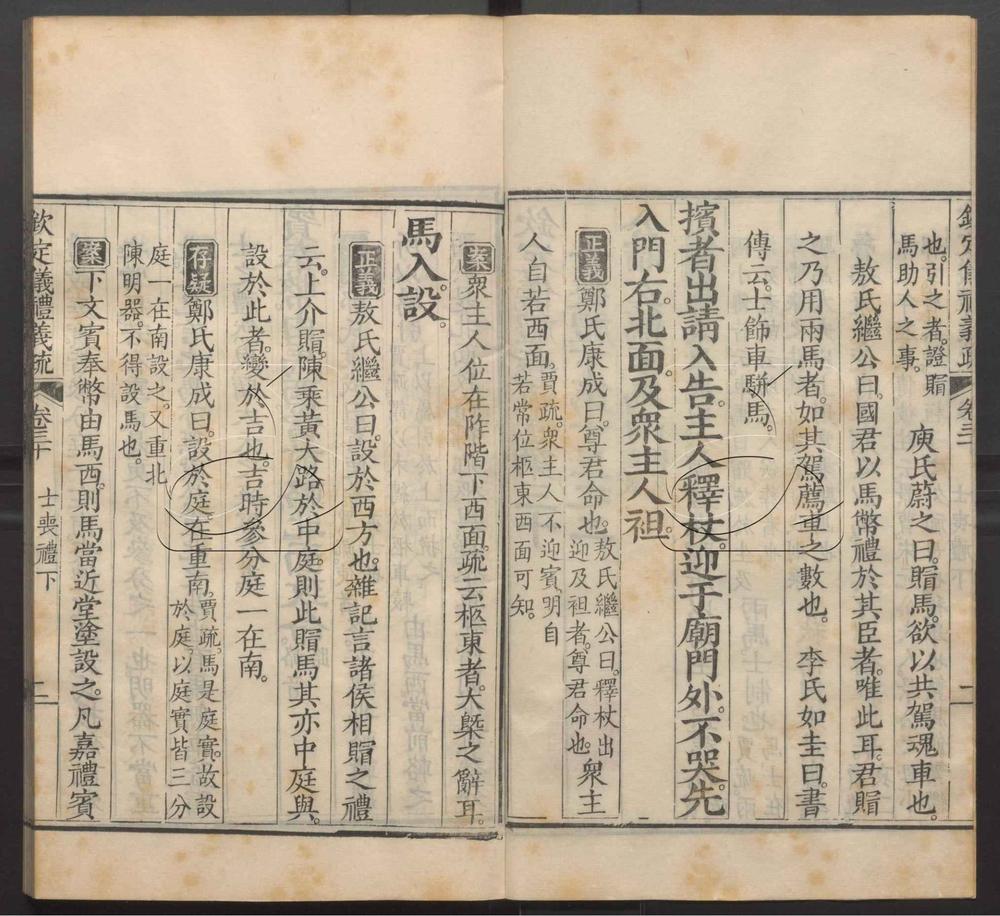 欽定儀禮義疏 卷三十 二
也。引之者。證賵 庾氏蔚之曰。賵馬。欲以共駕魂車也。
馬助人之事。
敖氏繼公曰。國君以馬幣禮於其臣者。唯此耳。君賵
之乃用兩馬者。如其駕薦車之數也。 李氏如圭曰。書
傳云。士飾車駢馬。
擯者出請入告。主人釋杖。迎于廟門外。不哭。先
入門右。北面。及眾主人袒。
正義 鄭氏康成曰。尊君命也。敖氏繼公曰。釋杖出
迎及袒者。尊君命也。眾主
人自若西面。賈疏。眾主人不迎賓。明自
若常位柩東西面可知。
案 眾主人位在阼階下西面。疏云柩東者。大槩之辭耳。
馬入設。
正義 敖氏繼公曰。設於西方也。雜記言諸侯相賵之禮
云。上介賵。陳乘黃大路於中庭。則此賵馬其亦中庭與。
設於此者。變於吉也。吉時參分庭一在南。
存疑 鄭氏康成曰。設於庭在重南。賈疏。馬是庭實。故設
於庭。以庭實皆三分
庭一在南設之。又重北
陳明器。不得設馬也。
案 下文賓奉幣由馬西。則馬當近堂塗設之。凡嘉禮賓
欽定儀禮義疏 卷三十 士喪禮下 二